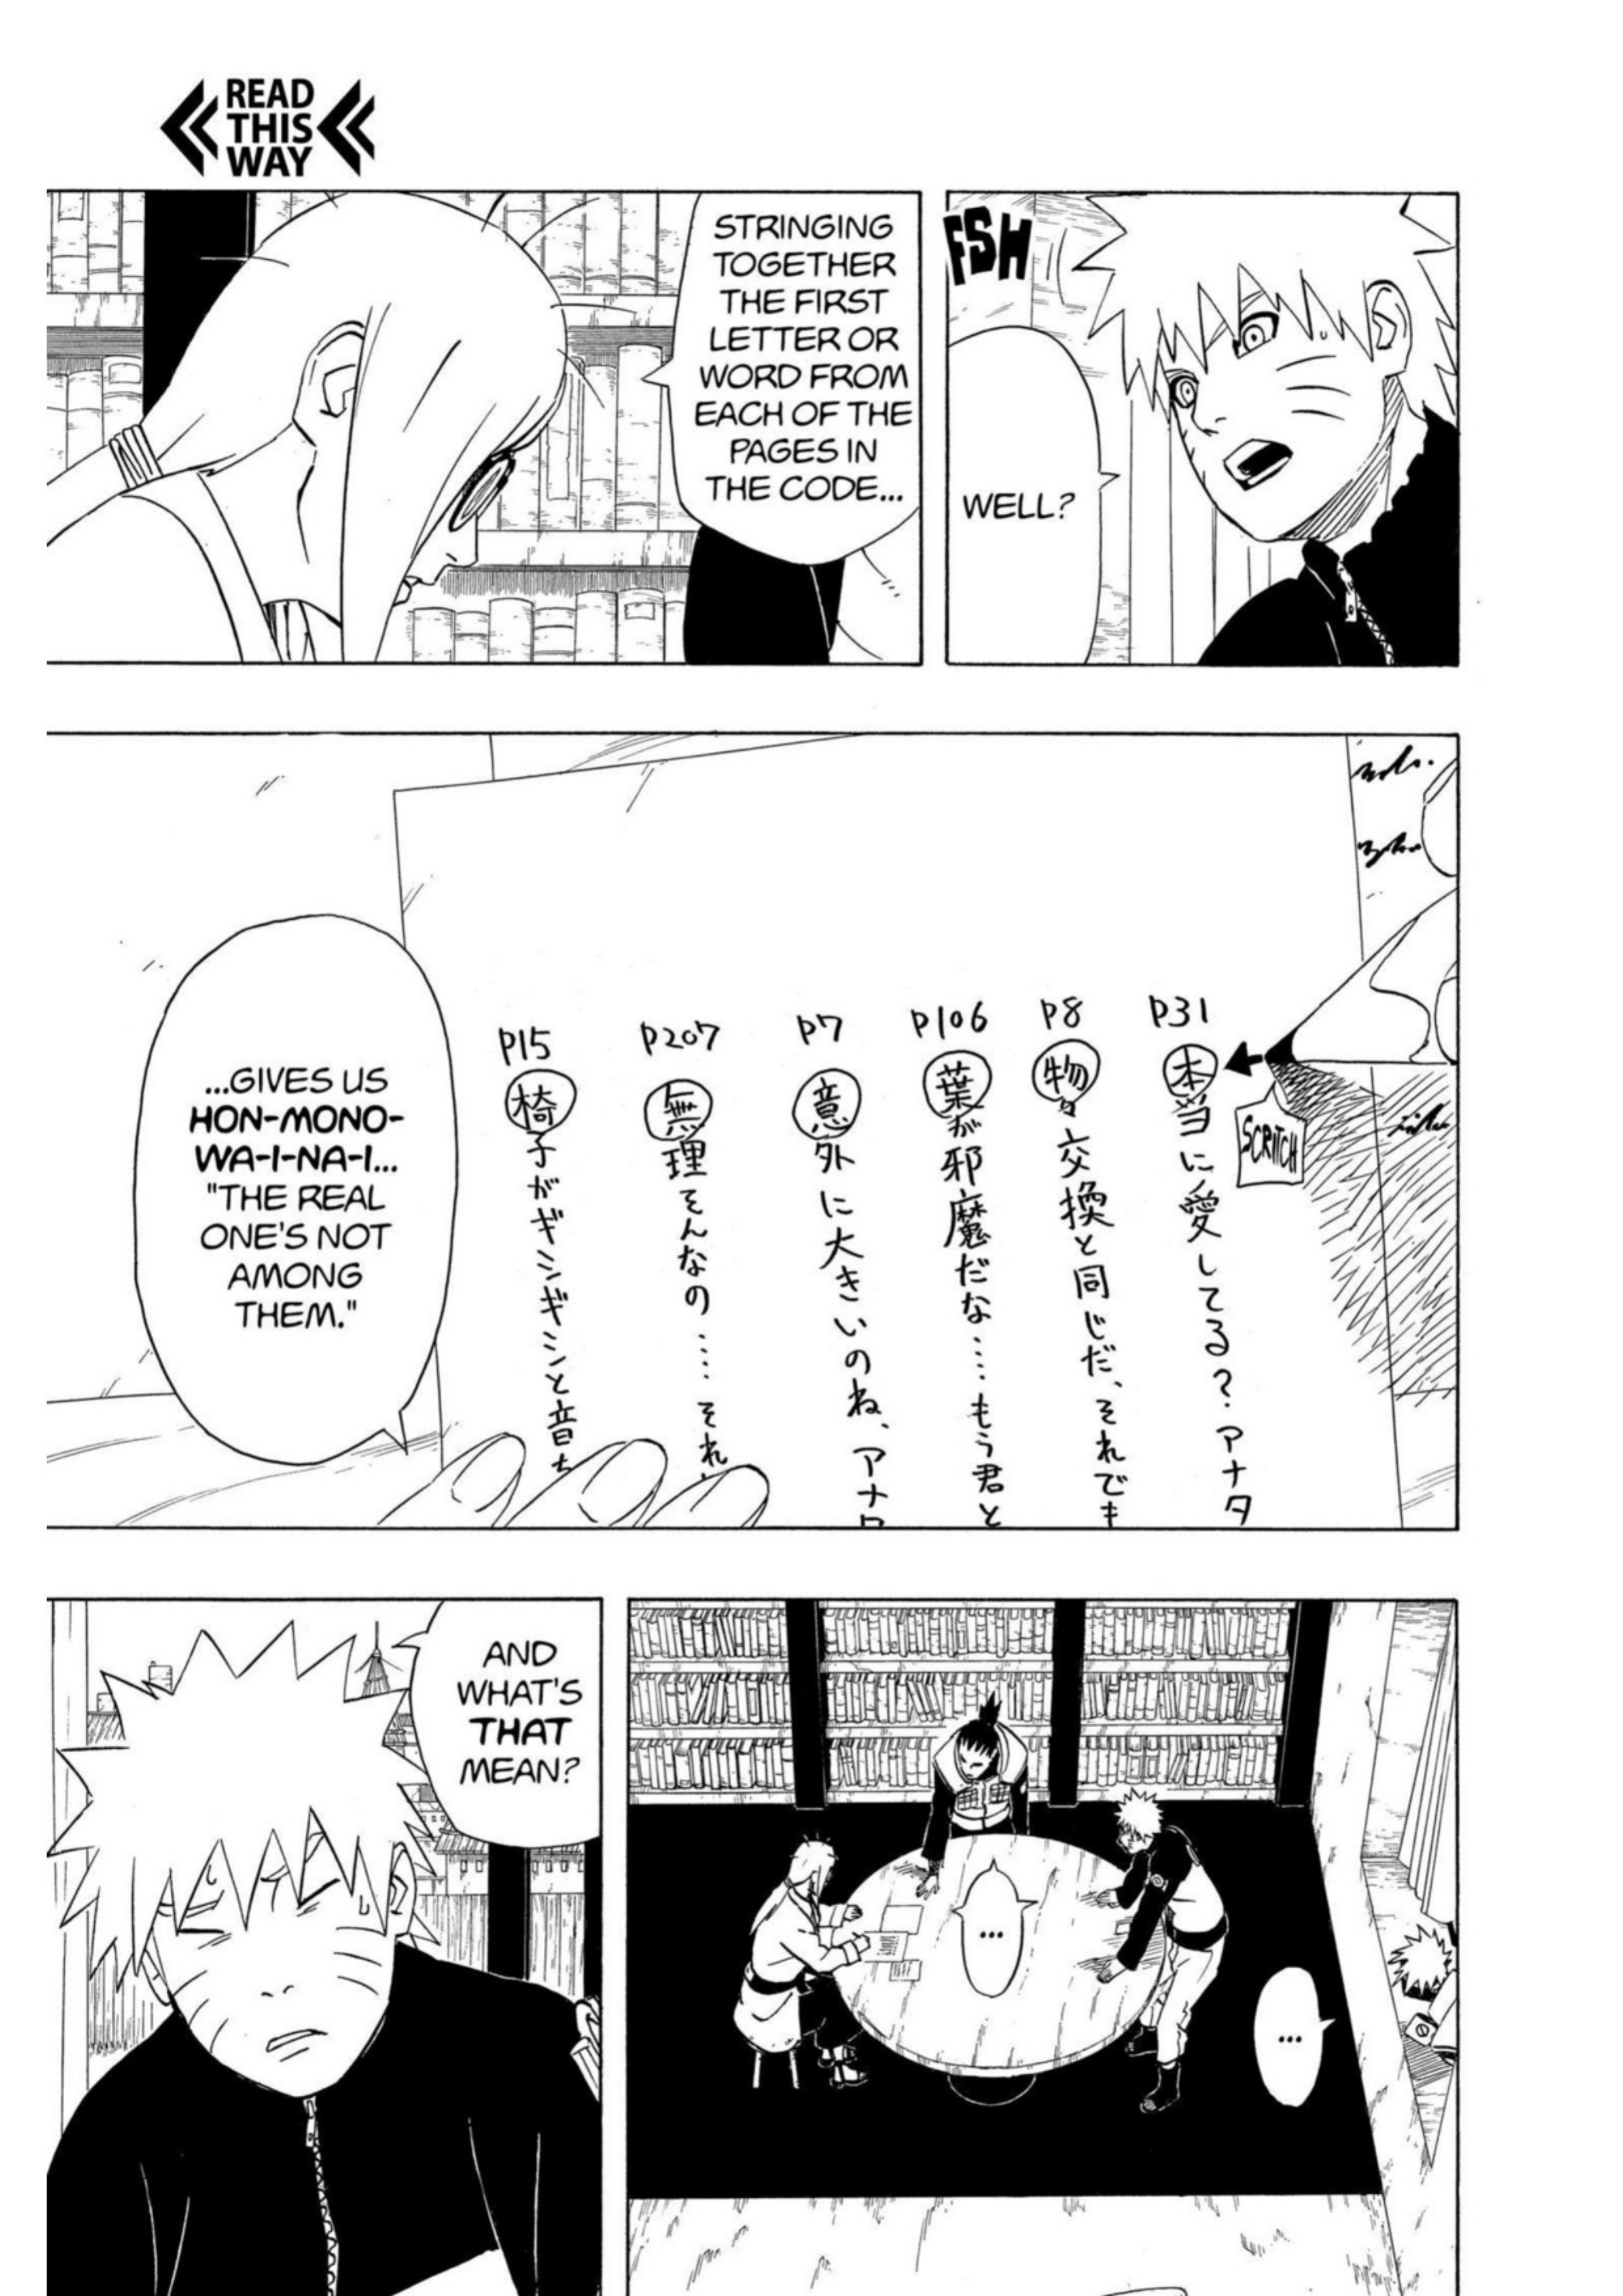 READ
THIS
WAY
FSH
WELL?
STRINGING
TOGETHER
THE FIRST
LETTER OR
WORD FROM
EACH OF THE
PAGES IN
THE CODE...
P31
本当に愛してる?アナタ
SCRITCH
P8
物々交換と同じだ、それでも
P106
葉が邪魔だな‥‥もう君と
P7
意外に大きいのね、アナタ
P207
無理そんなの‥‥それ
P15
椅子がギシギシと音
...GIVES US
HON-MONO-
WA-I-NA-I...
"THE REAL
ONE'S NOT
AMONG
THEM."
...
...
AND
WHAT'S
THAT
MEAN?